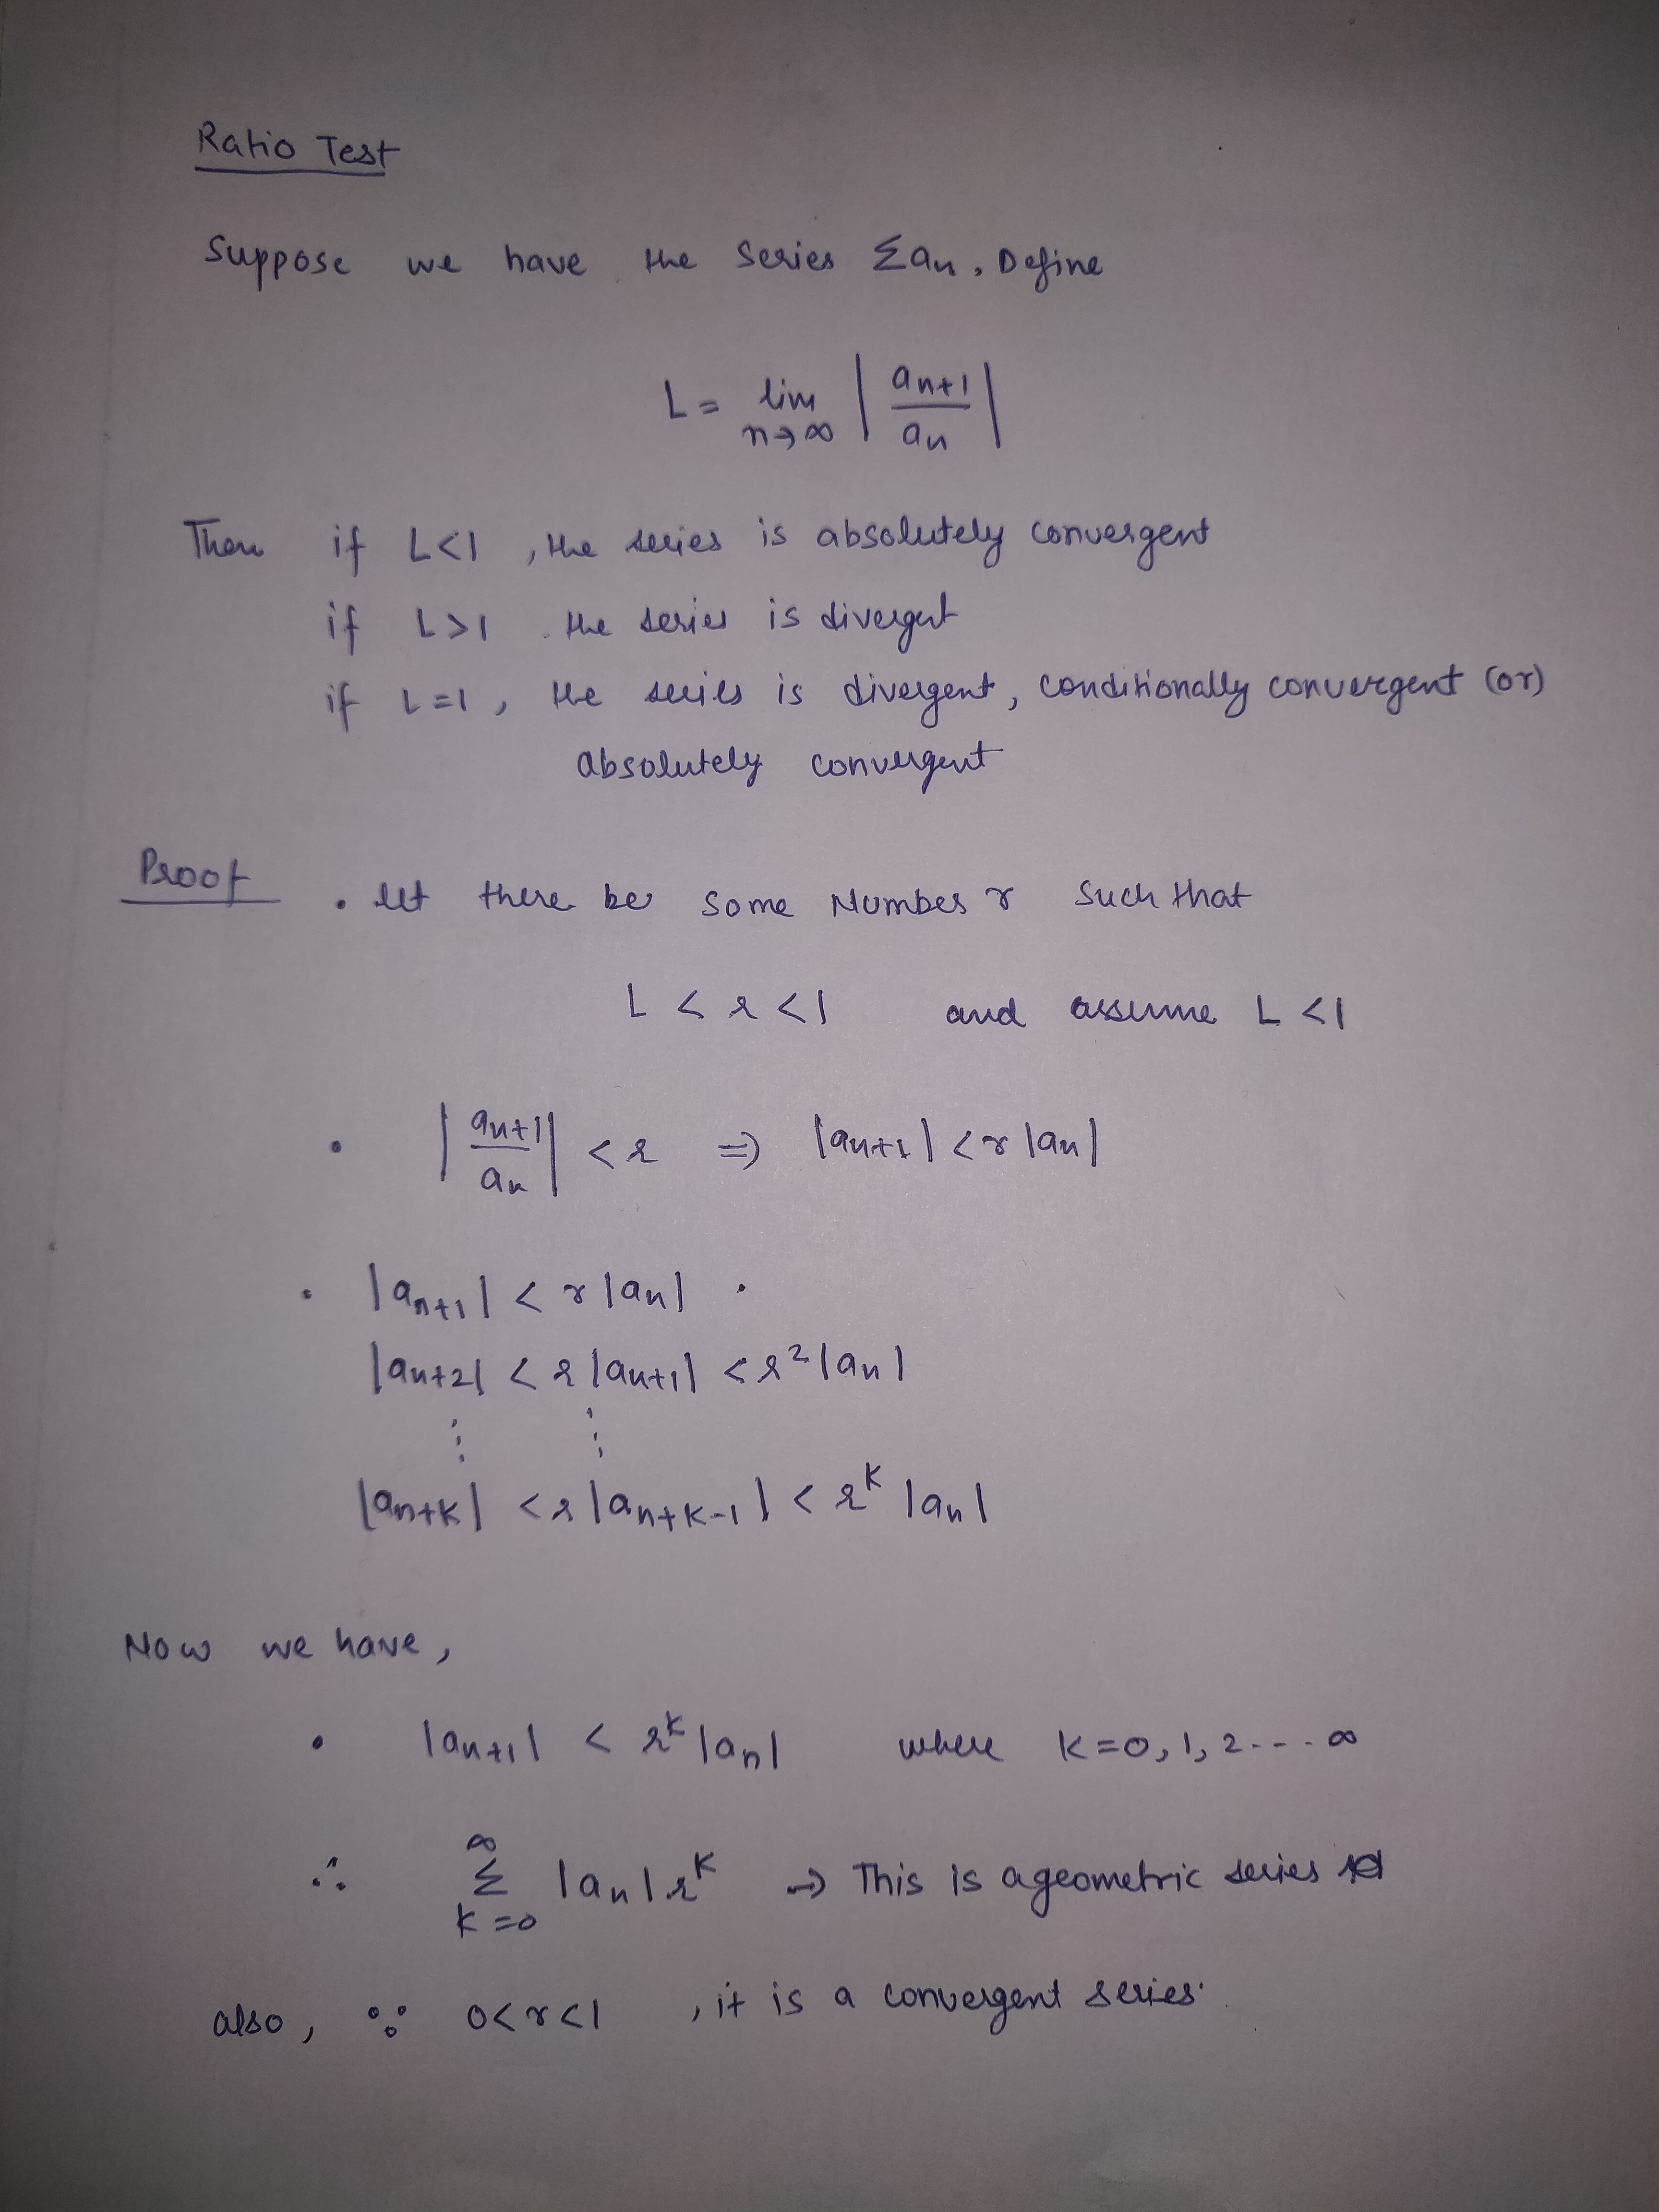 Ratio Test
Suppose we have the series Σan. Define
L = lim n→∞ | an+1 / an |
Then if L<1, the series is absolutely convergent
if L>1 the series is divergent
if L=1, the series is divergent, conditionally convergent (or)
absolutely convergent
Proof . let there be some Number r such that
L < r < 1 and assume L < 1
• | an+1 / an | < r ⇒ |an+1| < r |an|
• |an+1| < r |an| .
|an+2| < r |an+1| < r² |an|
⋮ ⋮
|an+k| < r |an+k-1| < r^k |an|
Now we have,
• |an+1| < r^k |an| where k=0, 1, 2 .... ∞
∴ ∞ Σ k=0 |an| r^k → This is a geometric series
also, ∵ 0<r<1 , it is a convergent series.